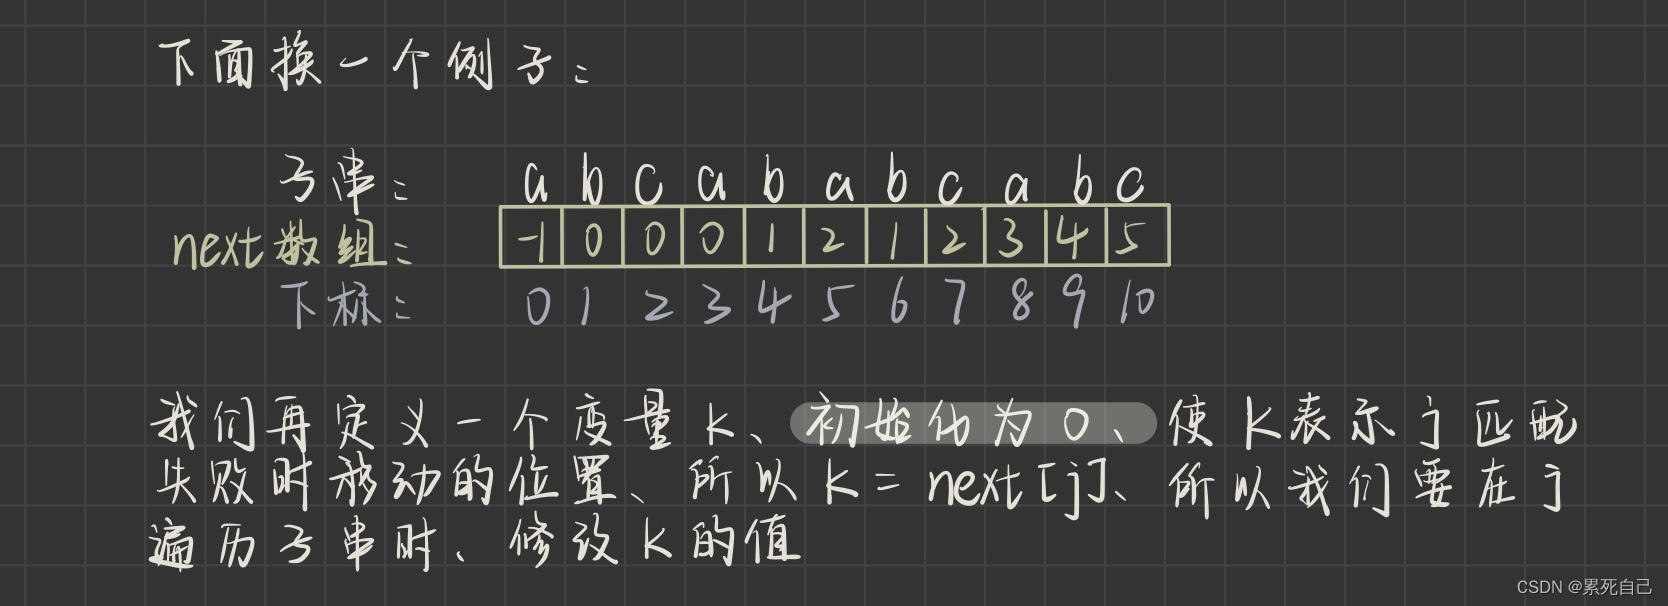 下面换一个例子：
子串： a b c a b a b c a b c
next数组： -1 0 0 0 1 2 1 2 3 4 5
下标： 0 1 2 3 4 5 6 7 8 9 10
我们再定义一个变量k、初始化为0、使k表示j匹配
失败时移动的位置、所以k=next[j]、所以我们要在j
遍历子串时、修改k的值
CSDN @累死自己